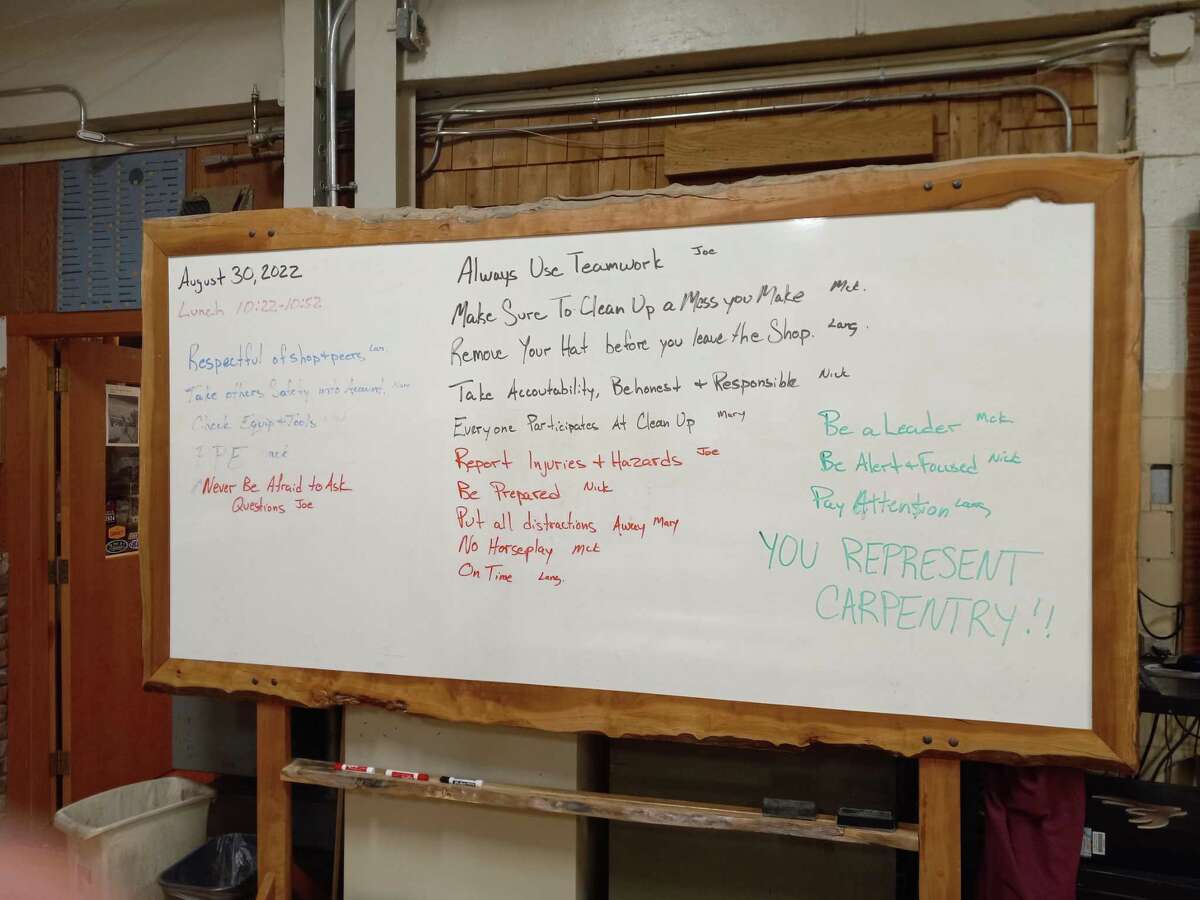 August 30, 2022
Lunch 10:22-10:52
Respectful of shop + peers, Lan.
Take others Safety into Account.
Check Equip + Tools
PPE
Never Be Afraid to Ask
Questions Joe
Always Use Teamwork Joe
Make Sure To Clean Up a Mess you Make Mck.
Remove Your Hat before you leave the Shop. Lang.
Take Accoutability, Be honest + Responsible Nick
Everyone Participates At Clean Up Mary
Report Injuries + Hazards Joe
Be Prepared Nick
Put all distractions Away Mary
No Horseplay Mck
On Time Lang.
Be a Leader Mck
Be Alert + Focused Nick
Pay Attention Lang
YOU REPRESENT
CARPENTRY!!